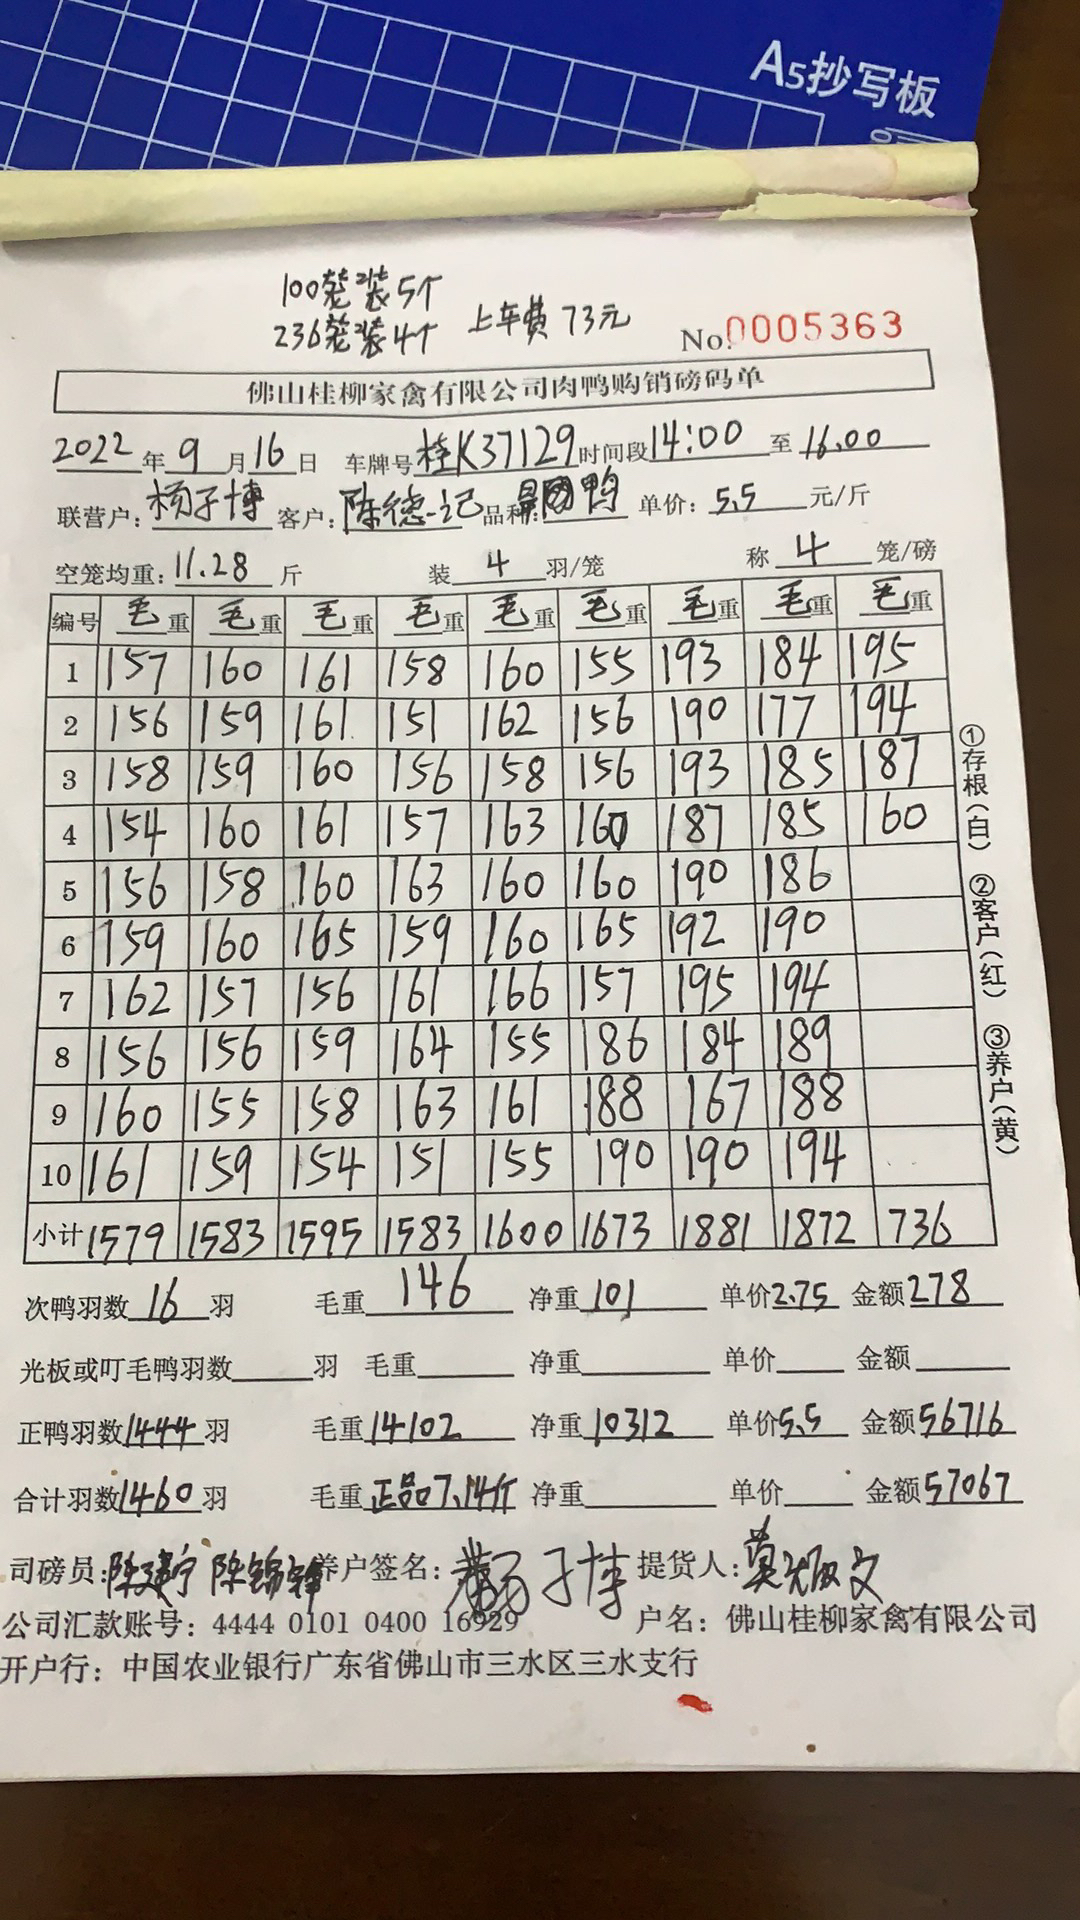 A5抄写板
100笼装5个
236笼装4个 上车费 73元
No.0005363
佛山桂柳家禽有限公司肉鸭购销磅码单
2022年9月16日 车牌号桂K37129时间段14:00至16.00
联营户:杨子博 客户:陈德记 品种: 鸭 单价:5.5元/斤
空笼均重:11.28斤 装4羽/笼 称4笼/磅
编号 毛重 毛重 毛重 毛重 毛重 毛重 毛重 毛重 毛重
1 157 160 161 158 160 155 193 184 195
2 156 159 161 151 162 156 190 177 194
3 158 159 160 156 158 156 193 185 187
4 154 160 161 157 163 160 187 185 160
5 156 158 160 163 160 160 190 186
6 159 160 165 159 160 165 192 190
7 162 157 156 161 166 157 195 194
8 156 156 159 164 155 186 184 189
9 160 155 158 163 161 188 167 188
10 161 159 154 151 155 190 190 194
小计 1579 1583 1595 1583 1600 1673 1881 1872 736
①存根(白) ②客户(红) ③养户(黄)
次鸭羽数16羽 毛重146 净重101 单价2.75 金额278
光板或叮毛鸭羽数 羽 毛重 净重 单价 金额
正鸭羽数1444羽 毛重14102 净重10312 单价5.5 金额56716
合计羽数1460羽 毛重正品7.14斤 净重 单价 金额57067
司磅员:陈建宁 陈锦锋 养户签名:杨子博 提货人:莫 文
公司汇款账号:4444 0101 0400 16929 户名:佛山桂柳家禽有限公司
开户行:中国农业银行广东省佛山市三水区三水支行